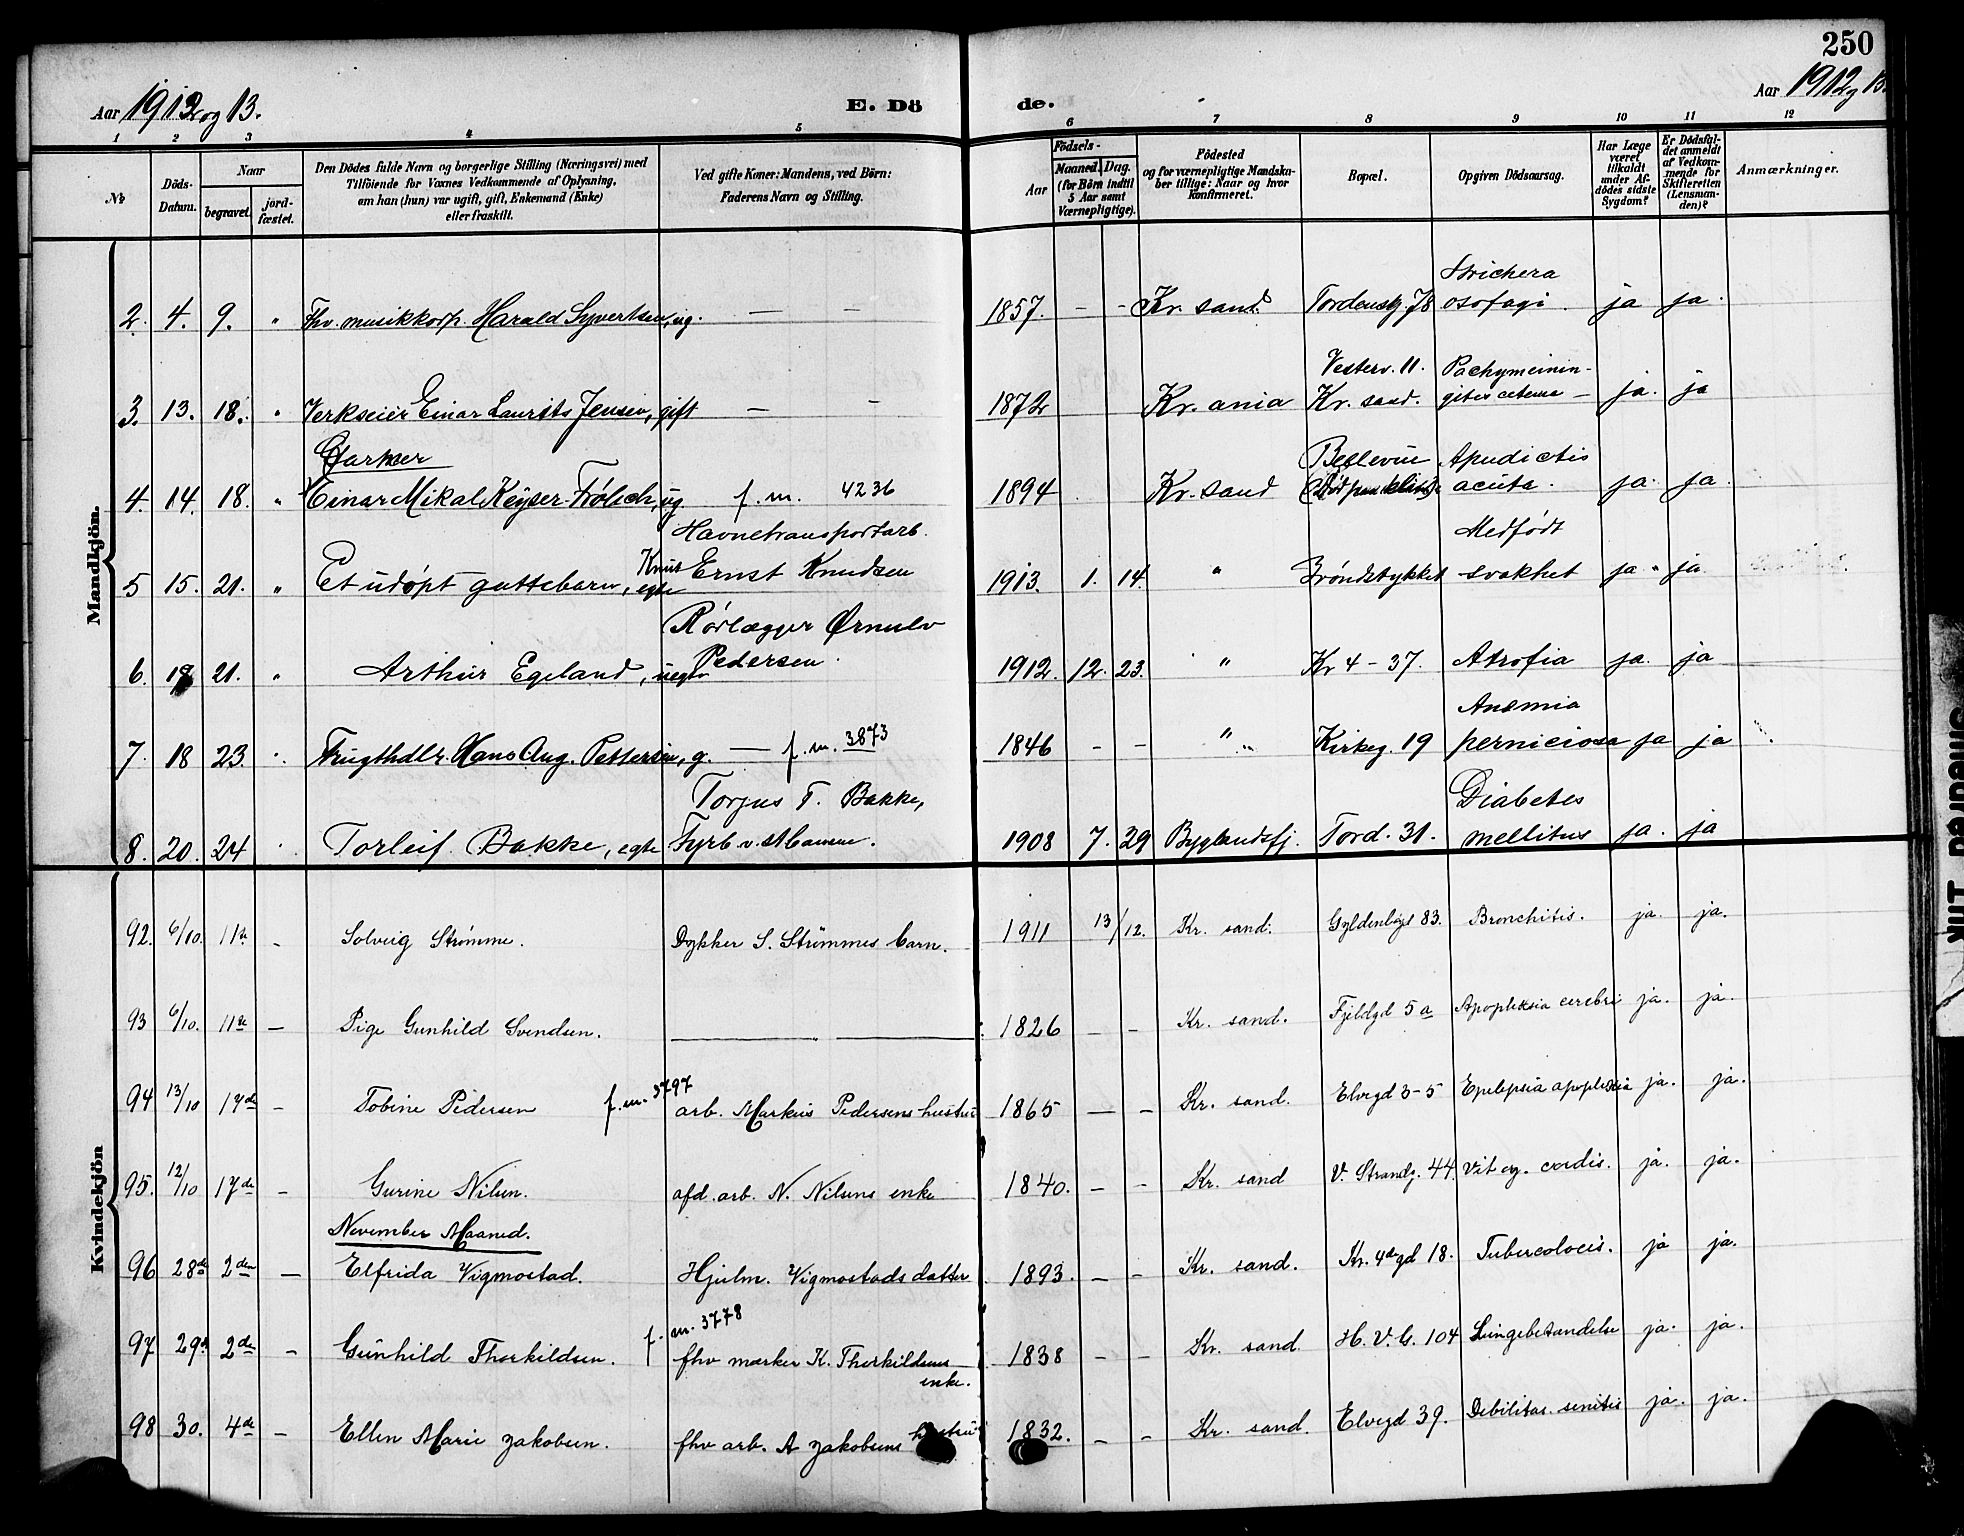 250
Aar 1912 og 13.
E. Dö de.
Aar 1912 og 13.
1 2 3 4 5 6 7 8 9 10 11 12
№
Döds-Datum.
Naar
begravet.
jord-fæstet.
Den Dödes fulde Navn og borgerlige Stilling (Næringsvei) med
Tilföiende for Voxnes Vedkommende af Oplysning,
om han (hun) var ugift, gift, Enkemand (Enke)
eller fraskilt.
Ved gifte Koner: Mandens, ved Börn:
Faderens Navn og Stilling.
Födsels-
Aar
Maaned. Dag.
(for Börn indtil
5 Aar samt
Værnepligtige).
Födested
og for værnepligtige Mandska-
ber tillige: Naar og hvor
konfirmeret.
Bopæl.
Opgiven Dödsaarsag.
Har Læge
været
tilkaldt
under Af-
dödes sidste
Sygdom?
Er Dödsfal-
det anmeldt
af Vedkom-
mende for
Skifteretten
(Lensman-
den)?
Anmærkninger.
Mandkjön.
2. 4. 9. " Fhv. musikkorp. Harald Syvertsen, ug. — — 1857. - - Kr. sand. Tordensk. 78 osofagi. ja ja.
3. 13. 18. " Verkseier Einar Laurits Jensen, gift — — 1872 Kr. ania Vesterv. 11. Kr. sand. Pachymeinin- ja. ja
Garver
4. 14. 18. " Einar Mikal Keyser-Frølich, ug f. m. 4236 1894 Kr. sand Bellevue Apudictis acuta. ja. ja.
Havnetransportarb.
5 15. 21. " Et udøpt guttebarn, egte Knut Ernst Knudsen 1913. 1. 14. " Brøndstykket Medfødt svakhet ja " ja.
Rørlægger Ørnulv
6. 18 21. " Arthur Egeland, uegte Pedersen. 1912. 12. 23. " Kr 4 - 37. Atrofia ja. ja
7. 18 23. " Frugthdlr. Hans Aug. Pettersen, g. — f. m. 3873 1846 - - " Kirkeg. 19 Anæmia perniciosa ja ja
Torjus T. Bakke,
8. 20. 24 Torleif Bakke, egte Fyrb. v. 1908 7. 29 Byglandsfj. Tord. 31. Diabetes mellitus ja. ja
Kvindekjön
92. 6/10. 11te - Solveig Strømme. Dykker S. Strömmes barn. 1911 13/12. Kr. sand. Gyldenløvsg 83. Bronchitis. ja. ja.
93 6/10. 11te — Pige Gunhild Svendsen. — " — 1826 - - Kr. sand. Fjeldgd 5a Apopleksia cerebri ja. ja.
94 13/10 17de - Tobine Pedersen f. m. 3797 arb. Markus Pedersens hustru 1865 — - Kr. sand. Elvegd 3-5 Epilepsia apoplexia ja. ja.
95. 12/10 17de - Gurine Nilsen. afd. arb. N. Nilsens enke 1840. - - Kr. sand V. Strandg. 44. Vit og. cordis. ja. ja.
November Maaned.
96 28de 2den — Elfrida Vigmostad. Hjulm. Vigmostads datter 1893. - - Kr. sand. Kr. 4de gd 18. Tubercolocis. ja ja.
97 29de 2den - Gunhild Thorkildsen. f. m. 3778 fhv marker K. Thorkildsens enke. 1838 - - Kr. sand. H. V. G. 104 Lungebetændelse ja. ja.
98 30. 4de - Ellen Marie Jakobsen. fhv arb. A Jakobsens hustru 1832. - - Kr. sand. Elvegd 39. Debilitas senitis ja. ja.